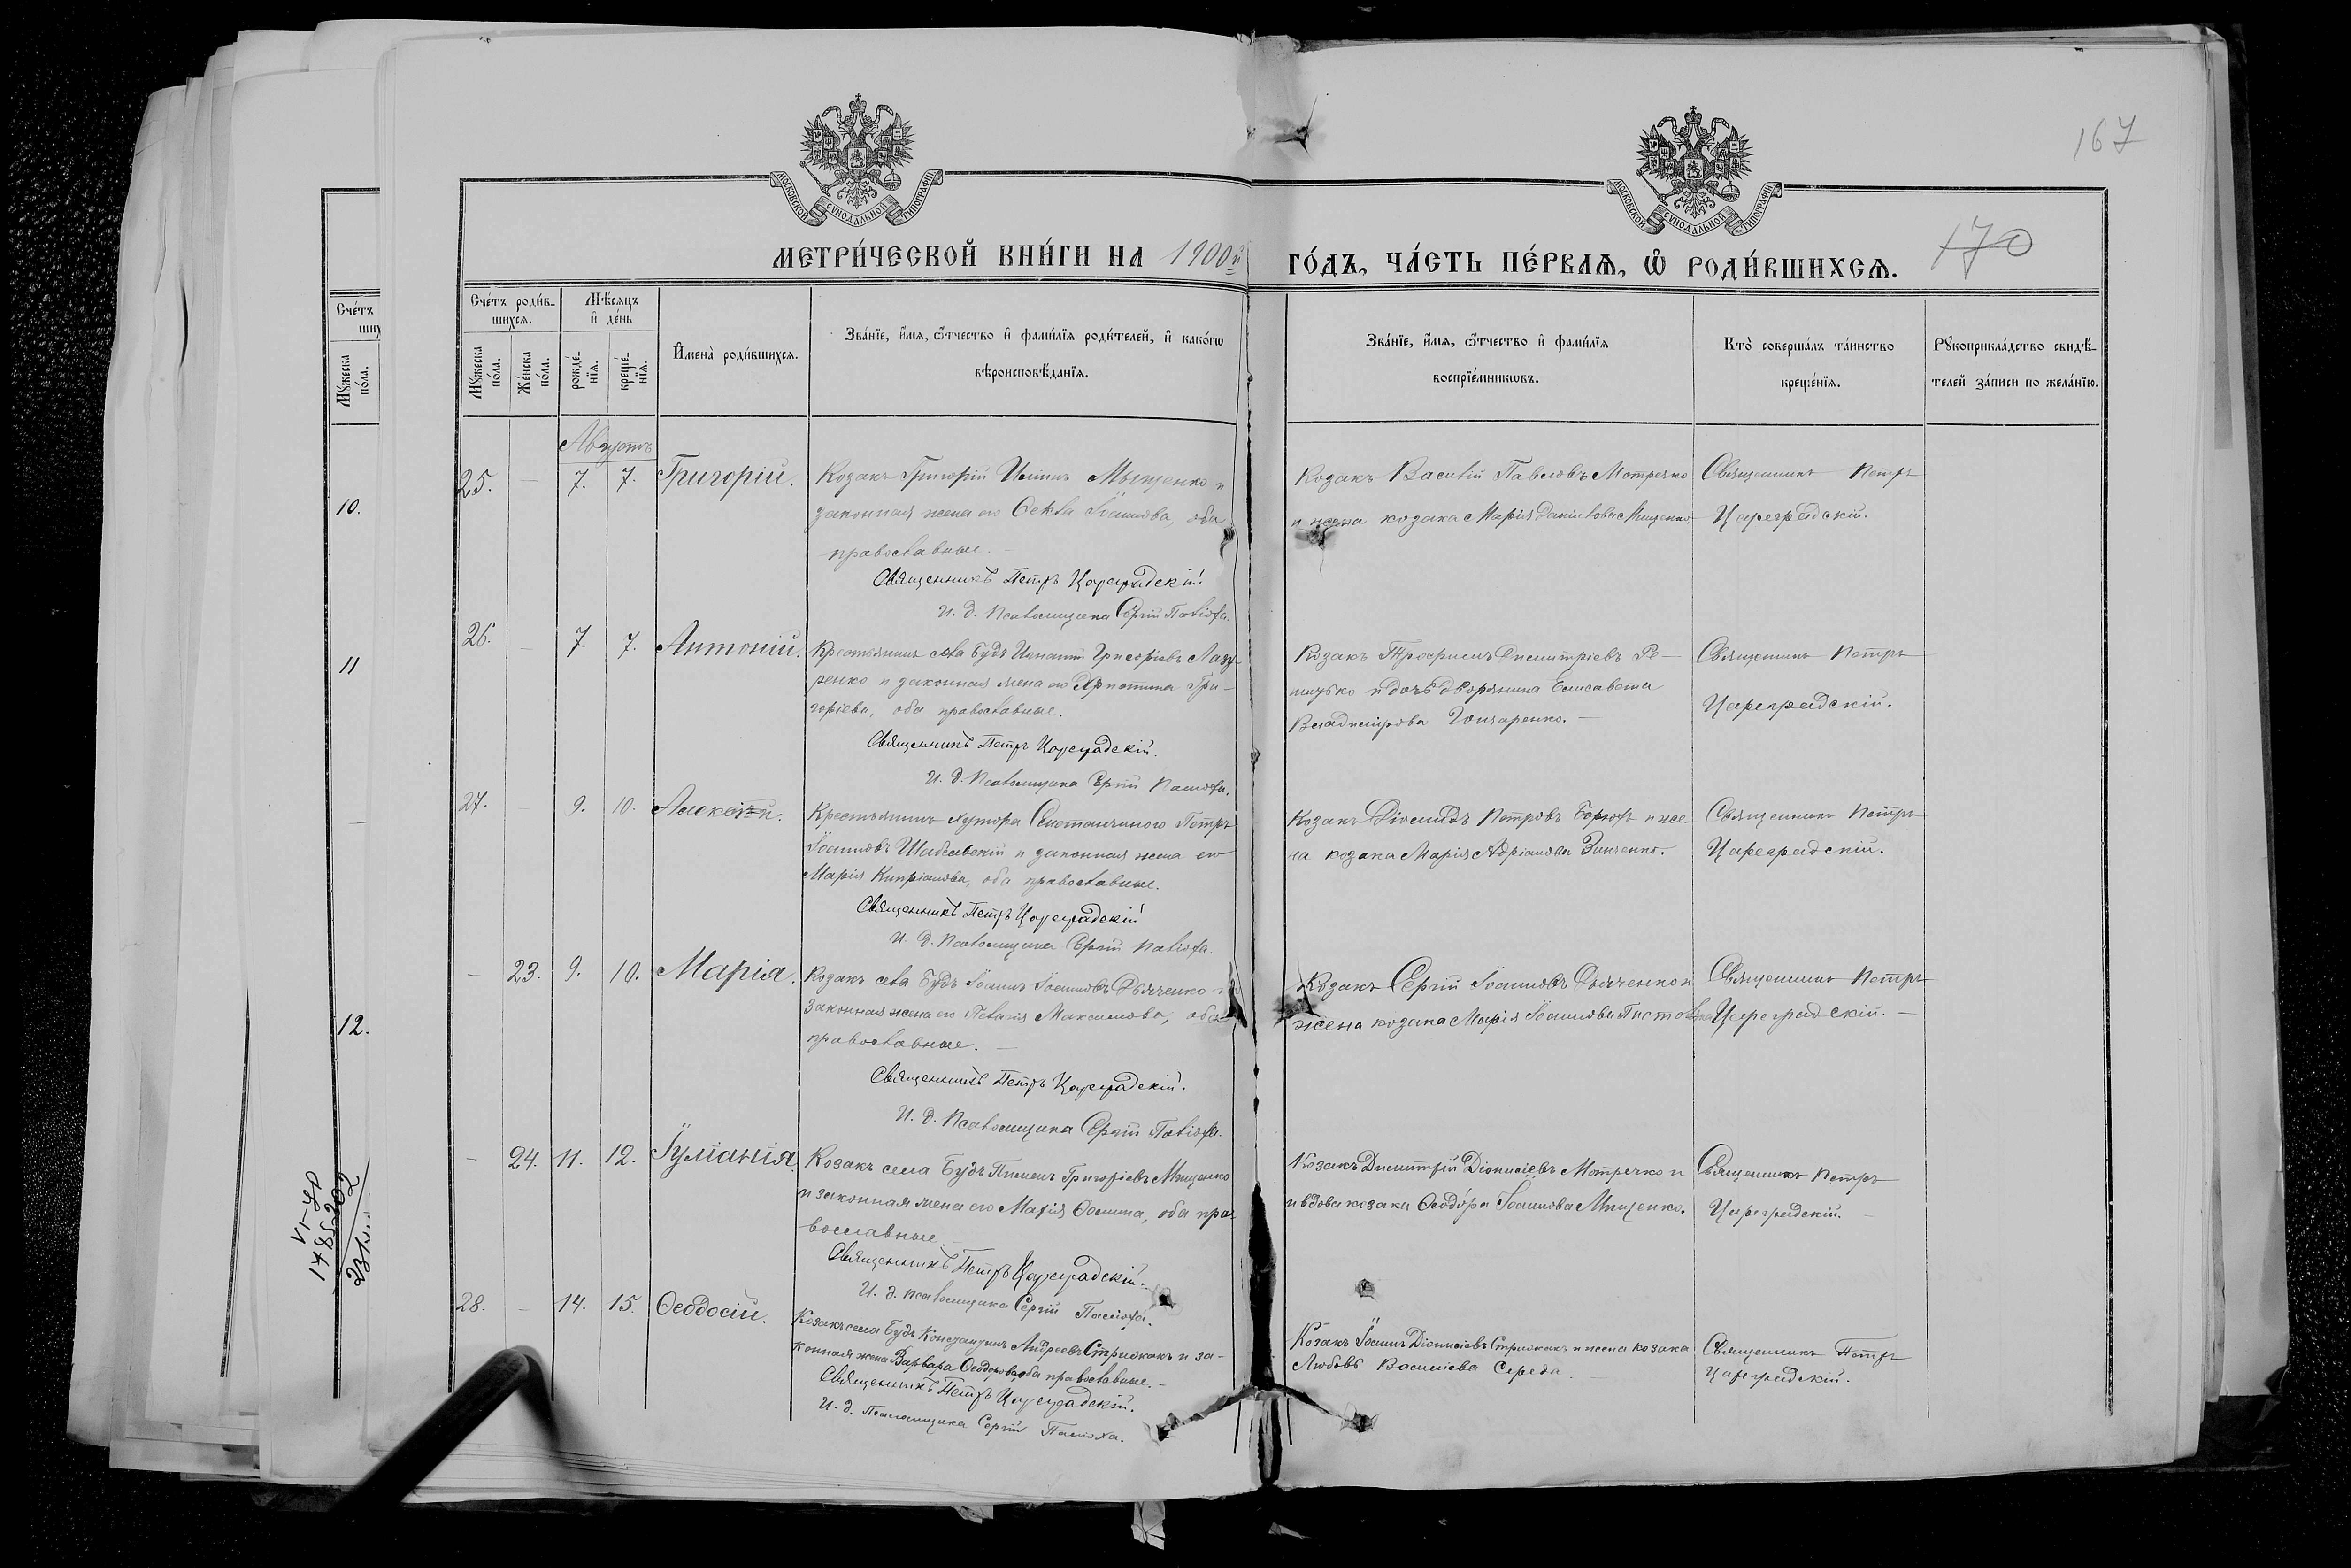 167
МОСКОВСКОЙ СѴНОДАЛЬНОЙ ТИПОГРАФІИ
МОСКОВСКОЙ СѴНОДАЛЬНОЙ ТИПОГРАФІИ
МЕТРИ́ЧЕСКОЙ КНИ́ГИ НА 1900й ГО́ДЪ, ЧА́СТЬ ПЕ́РВАѦ, Ѿ РОДИ́ВШИХСѦ.
170
Сче́тъ роди́в-
шихсѧ.
Мѣсѧцъ
и҆ де́нь
Мꙋжеска
по́ла.
Же́нска
по́ла.
рожде́-
нїѧ.
креще́-
нїѧ.
И҆мена̀ роди́вшихсѧ.
Зва́нїе, и҆́мѧ, ѻ҆́тчество и҆ фами́лїѧ роди́телей, и҆ како́гѡ
вѣроисповѣ́данїѧ.
Зва́нїе, и҆́мѧ, ѻ҆́тчество и҆ фами́лїѧ
воспрїе́мникѡвъ.
Кто̀ соверша́лъ та́инство
креще́нїѧ.
Рꙋкоприкла́дство свидѣ́-
телей за́писи по жела́нїю.
Сче́тъ
Мꙋжеска
по́ла.
10.
11
12.
Августъ
25. - 7. 7. Григорій.
Козакъ Григорій Мыщенко и
законная жена его Іоаннова, оба
православные.
Священникъ Петръ Цареградскій.
И. д. Псаломщика Сергій Палюха.
Козакъ Василій Павловъ Мотречко
и жена козака Марія Даніилова Мищенко
Священникъ Петръ
Цареградскій.
26. - 7. 7. Антоній.
Крестьянинъ села Будъ Игнатій Григоріевъ Лазу-
ренко и законная жена его Христина Гри-
горіева, оба православные.
Священникъ Петръ Цареградскій.
И. д. Псаломщика Сергій Палюха.
Козакъ Трофимъ Димитріевъ Ре-
и дочь дворянина Елисавета
Владимірова Гончаренко.
Священникъ Петръ
Цареградскій.
27. - 9. 10. Алексѣй.
Крестьянинъ хутора Петръ
Іоанновъ и законная жена его
Марія Кипріанова, оба православные.
Священникъ Петръ Цареградскій
И. д. Псаломщика Сергій Палюха.
Козакъ Діомидъ Петровъ и же-
на козака Марія Адріанова Зинченко.
Священникъ Петръ
Цареградскій.
- 23. 9. 10. Марія.
Козакъ села Будъ Іоаннъ Іоанновъ Дьяченко и
законная жена его Пелагія Максимова, оба
православные.
Священникъ Петръ Цареградскій.
И. д. Псаломщика Сергій Палюха.
Козакъ Сергій Іоанновъ Дьяченко и
жена козака Марія Іоаннова
Священникъ Петръ
Цареградскій.
- 24. 11. 12. Іуліанія.
Козакъ села Будъ Пименъ Григоріевъ Мищенко
и законная жена его Марія Ѳомина, оба пра-
вославные.
Священникъ Петръ Цареградскій.
И. д. псаломщика Сергій Палюха.
Козакъ Димитрій Діонисіевъ Мотречко и
и вдова козака Ѳеодора Іоаннова Мищенко.
Священникъ Петръ
Цареградскій.
28. - 14. 15. Ѳеодосій.
Козакъ села Будъ Андреевъ Стрижакъ и за-
конная жена Варвара Ѳеодорова, оба православные.
Священникъ Петръ Цареградскій.
И. д. Псаломщика Сергій Палюха.
Козакъ Іоаннъ Діонисіевъ Стрижакъ и жена козака
Любовь Василіева Середа.
Священникъ Петръ
Цареградскій.